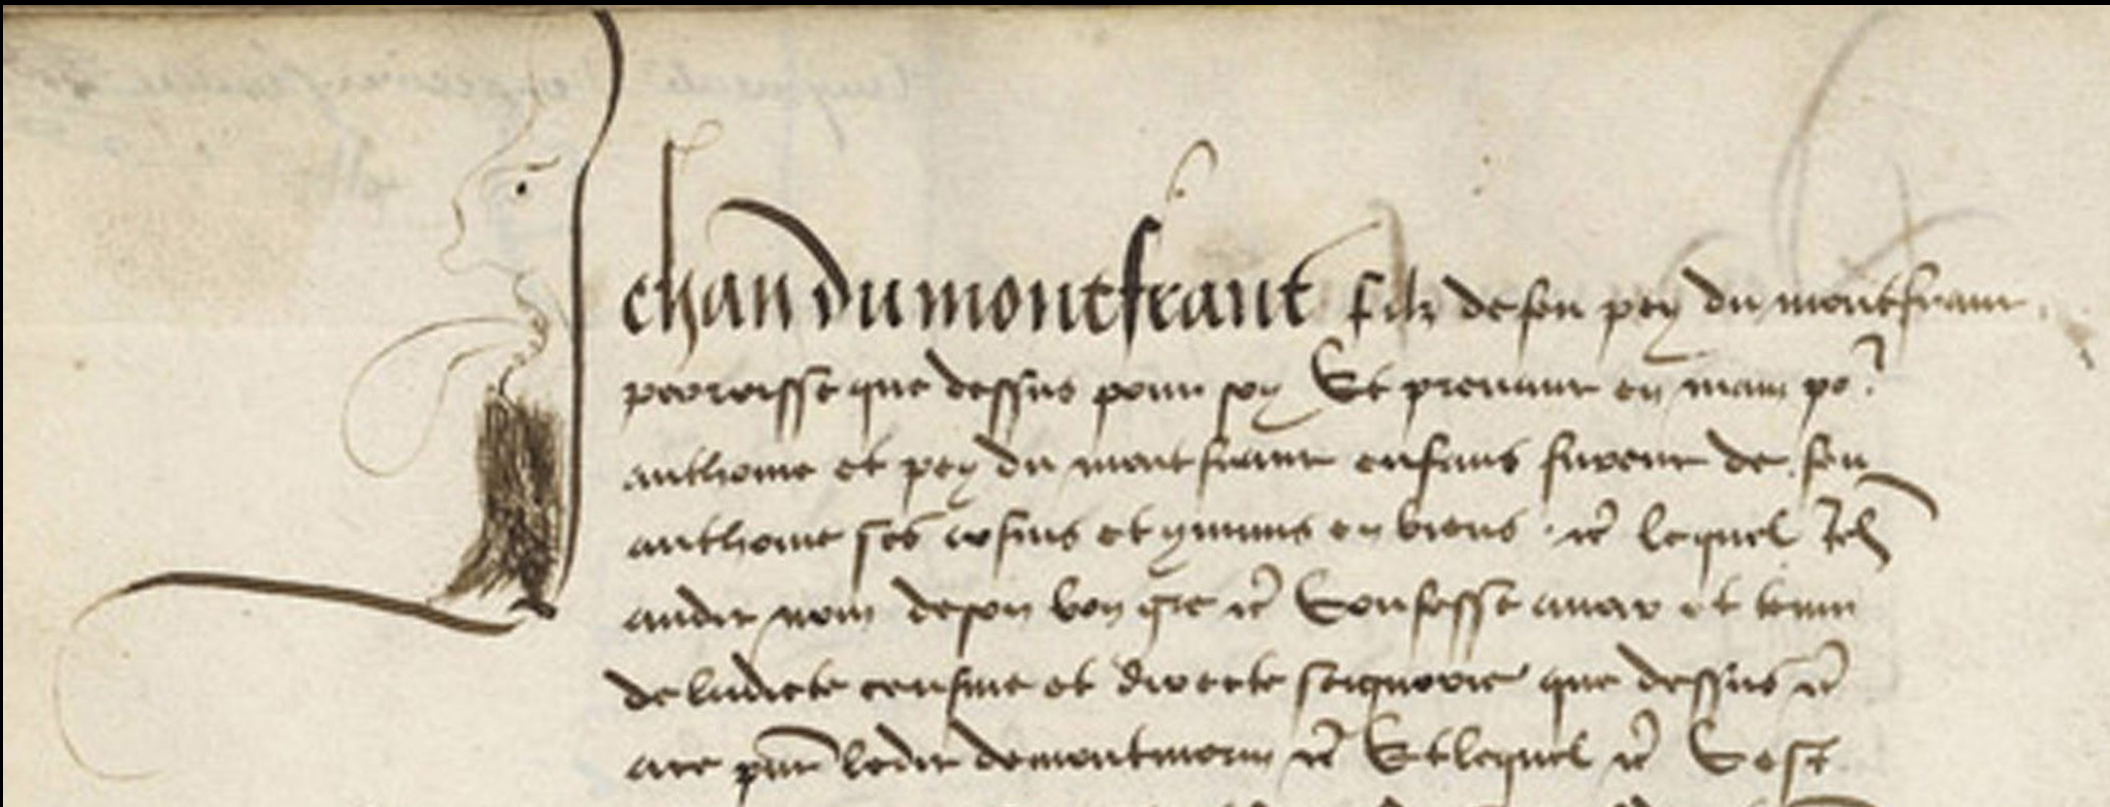 Jehan du montfrant filz de feu pey du montfrant
parroisse que dessus pour soy Et prenant en main po.r
anthoine et pey du montfrant enfans furent de feu
anthoine ses cosins et ꝯmuns en biens. &c lequel Jeh
audit nom de son bon gre &c Confesse avoir et tenir
de ladicte censive et directe seigneurie que dessus &c
ace pnt ledit de montmorin &c Et lequel &c C'est